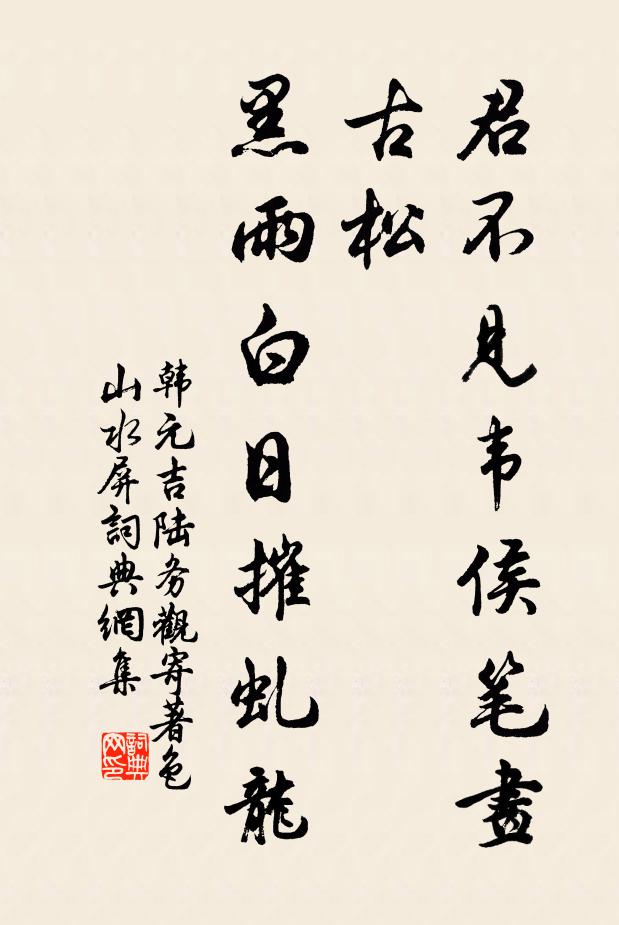 君不見韦侯笔畫
古松
黑雨白日摧虬龍
韩元吉陆务觀寄著色
山水屏詞典網集
詞典
网印